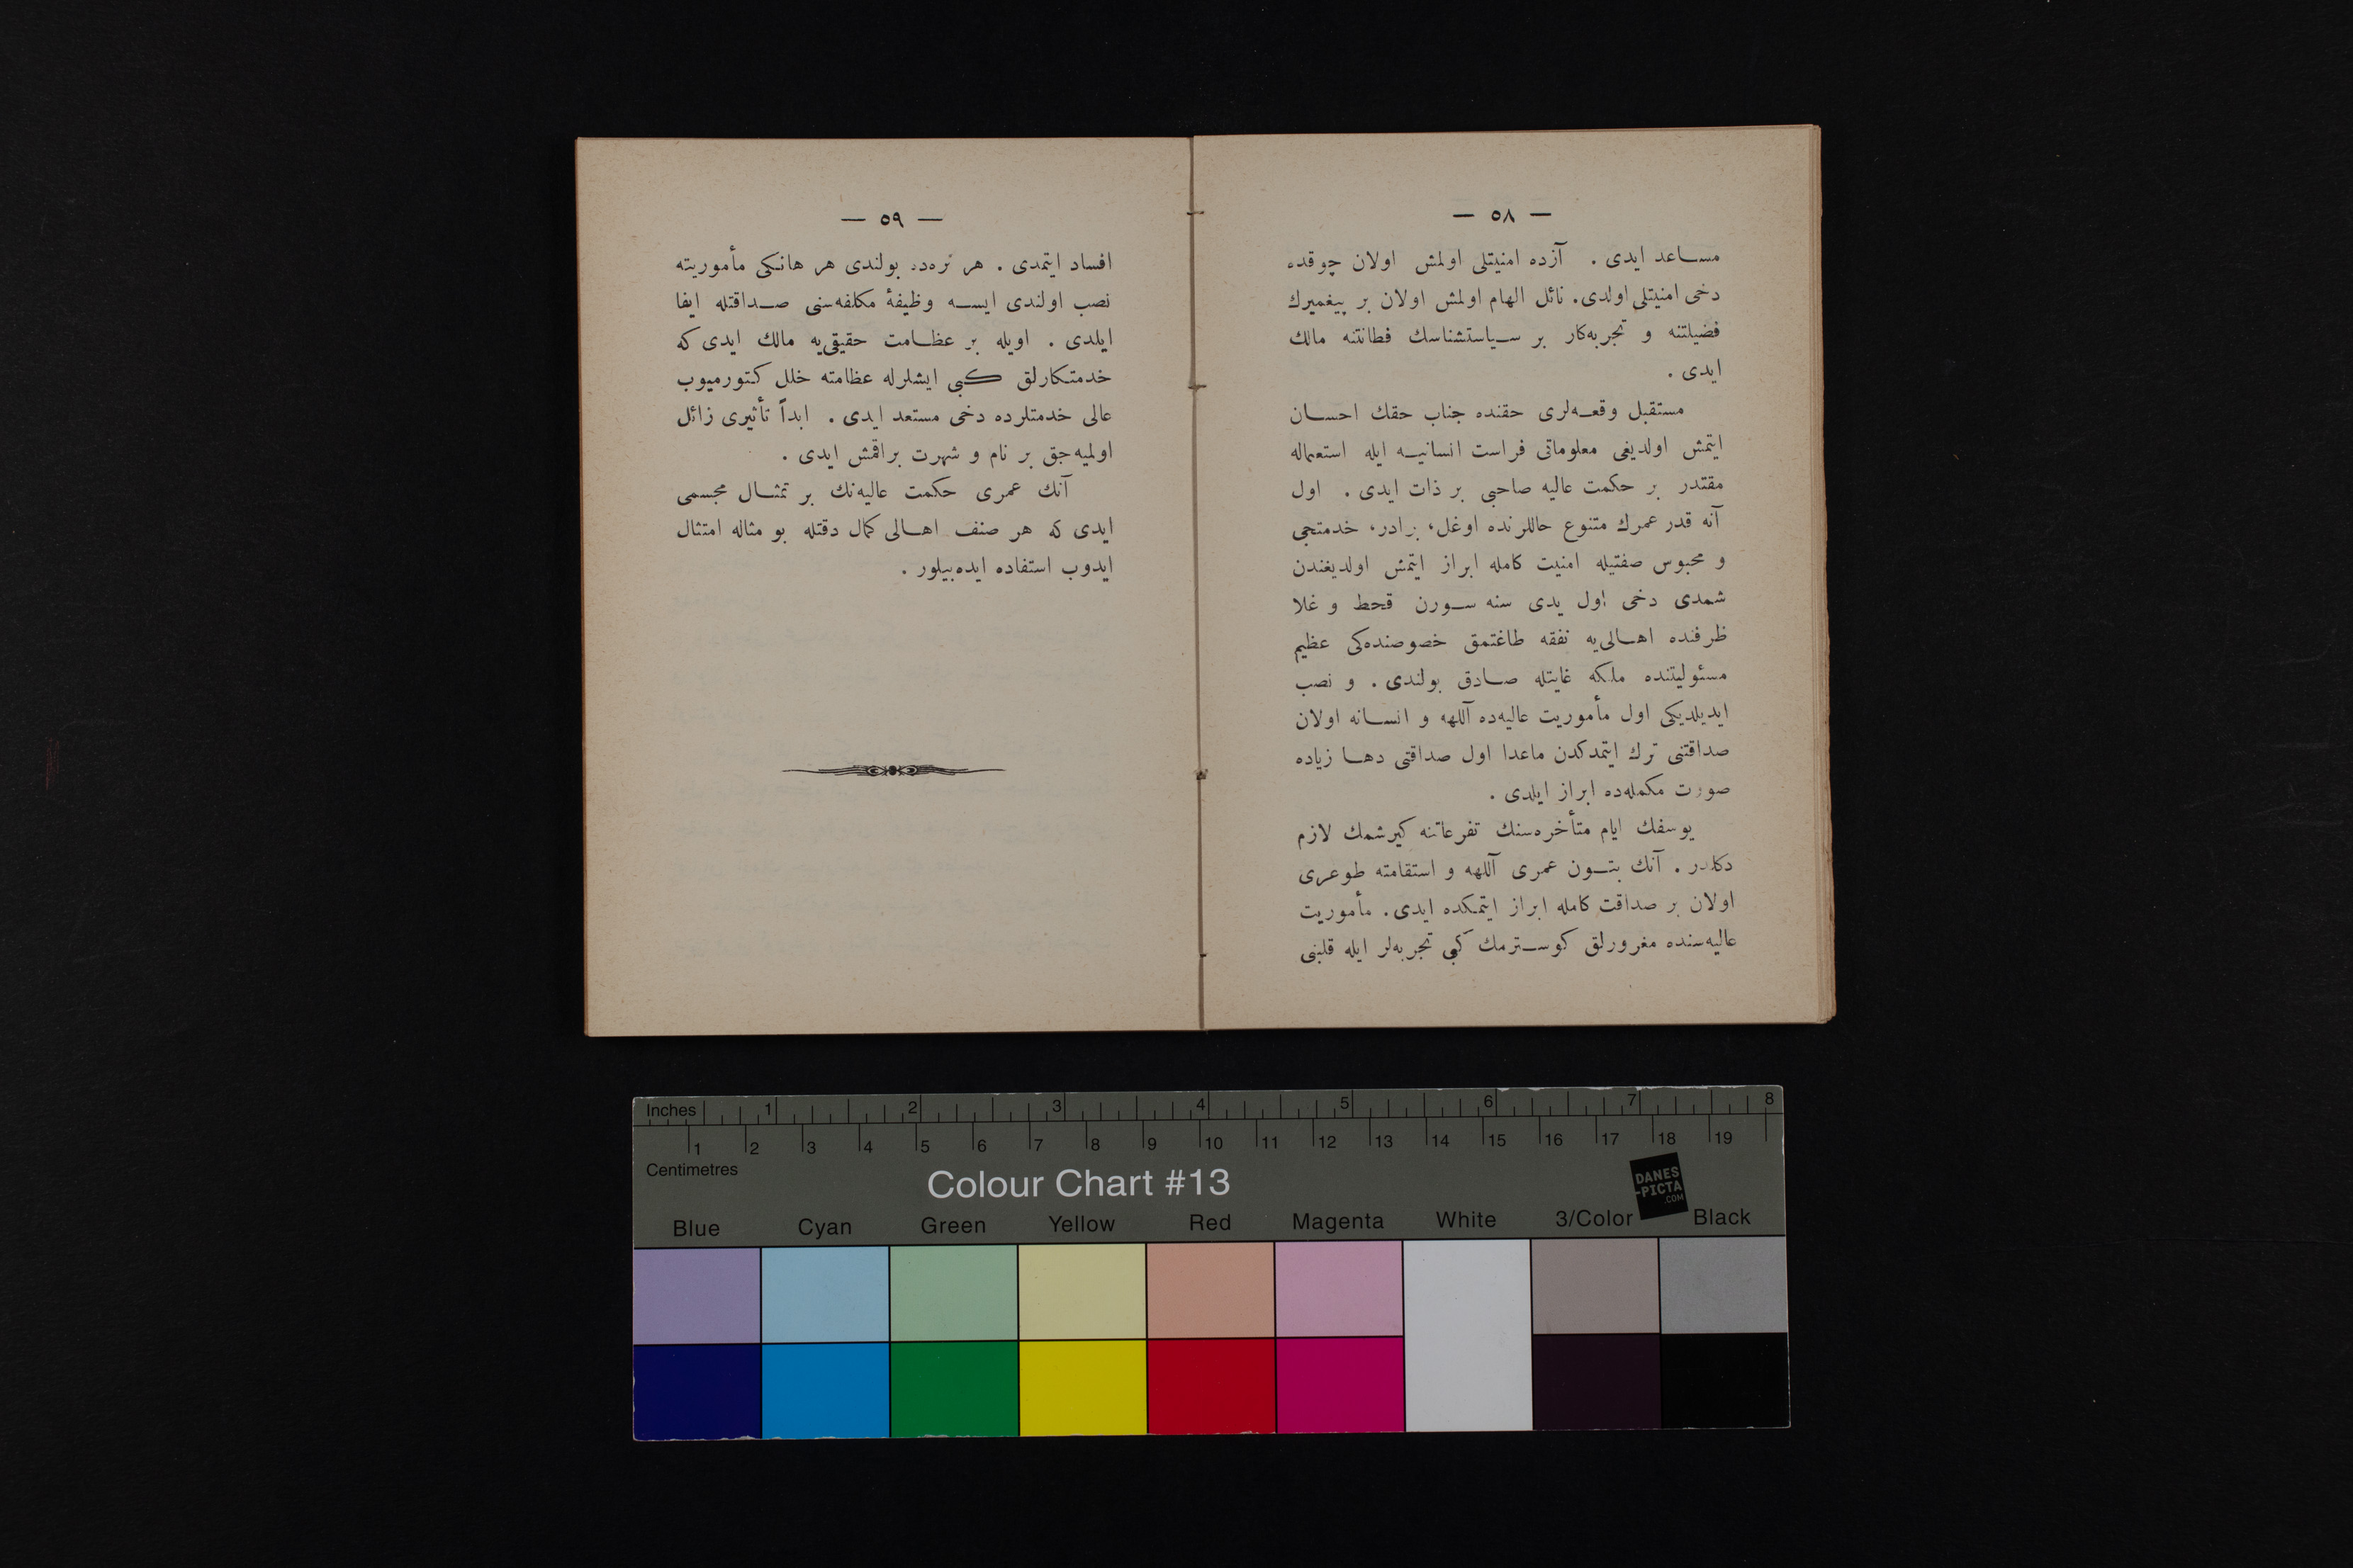 — ٥٨ —
مساعد ایدی . آزده امنیتلی اولمش اولان چوقده
دخی امنیتلی اولدی. نائل الهام اولمش اولان بر پیغمبرك
فضیلتنه و تجربه‌كار بر سیاستشناسك فطانتنه مالك
ایدی .
مستقبل وقعه‌لری حقنده جناب حقك احسان
ایتمش اولدیغی معلوماتی فراست انسانیه ایله استعماله
مقتدر بر حكمت عالیه صاحبی بر ذات ایدی . اول
آنه قدر عمرك متنوع حاللرنده اوغل، برادر، خدمتجی
و محبوس صفتیله امنیت كامله ابراز ایتمش اولدیغندن
شمدی دخی اول یدی سنه سورن قحط و غلا
ظرفنده اهالی‌یه نفقه طاغتمق خصوصنده‌كی عظیم
مسئولیتنده ملكه غایتله صادق بولندی . و نصب
ایدیلدیكی اول مأموریت عالیه‌ده آللهه و انسانه اولان
صداقتنی ترك ایتمدكدن ماعدا اول صداقتی دها زیاده
صورت مكمله‌ده ابراز ایلدی .
یوسفك ایام متأخره‌سنك تفرعاتنه كیرشمك لازم
دكلدر . آنك بتون عمری آللهه و استقامته طوغری
اولان بر صداقت كامله ابراز ایتمكده ایدی. مأموریت
عالیه‌سنده مغرورلق كوسترمك كبی تجربه‌لر ایله قلبنی
— ٥٩ —
افساد ایتمدی . هر نره‌ده بولندی هر هانكی مأموریته
نصب اولندی ایسه وظیفهٔ مكلفه‌سنی صداقتله ایفا
ایلدی . اویله بر عظامت حقیقی‌یه مالك ایدی كه
خدمتكارلق كبی ایشلرله عظامته خلل كتورمیوب
عالی خدمتلرده دخی مستعد ایدی . ابداً تأثیری زائل
اولمیه‌جق بر نام و شهرت براقمش ایدی .
آنك عمری حكمت عالیه‌نك بر تمثال مجسمی
ایدی كه هر صنف اهالی كمال دقتله بو مثاله امتثال
ایدوب استفاده ایده‌بیلور .
Inches 1 2 3 4 5 6 7 8
1 2 3 4 5 6 7 8 9 10 11 12 13 14 15 16 17 18 19
Centimetres
Colour Chart #13
DANES
-PICTA
.COM
Blue Cyan Green Yellow Red Magenta White 3/Color Black